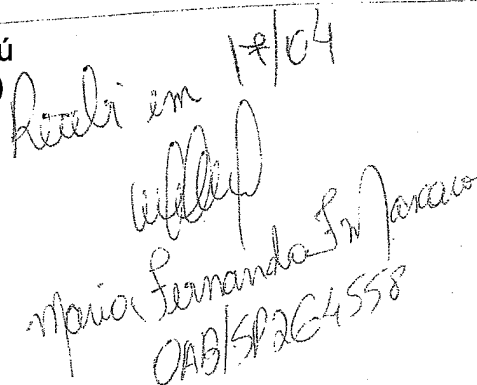 ú
Recebi em 17/04
Maria Fernanda F.
OAB/SP 264558